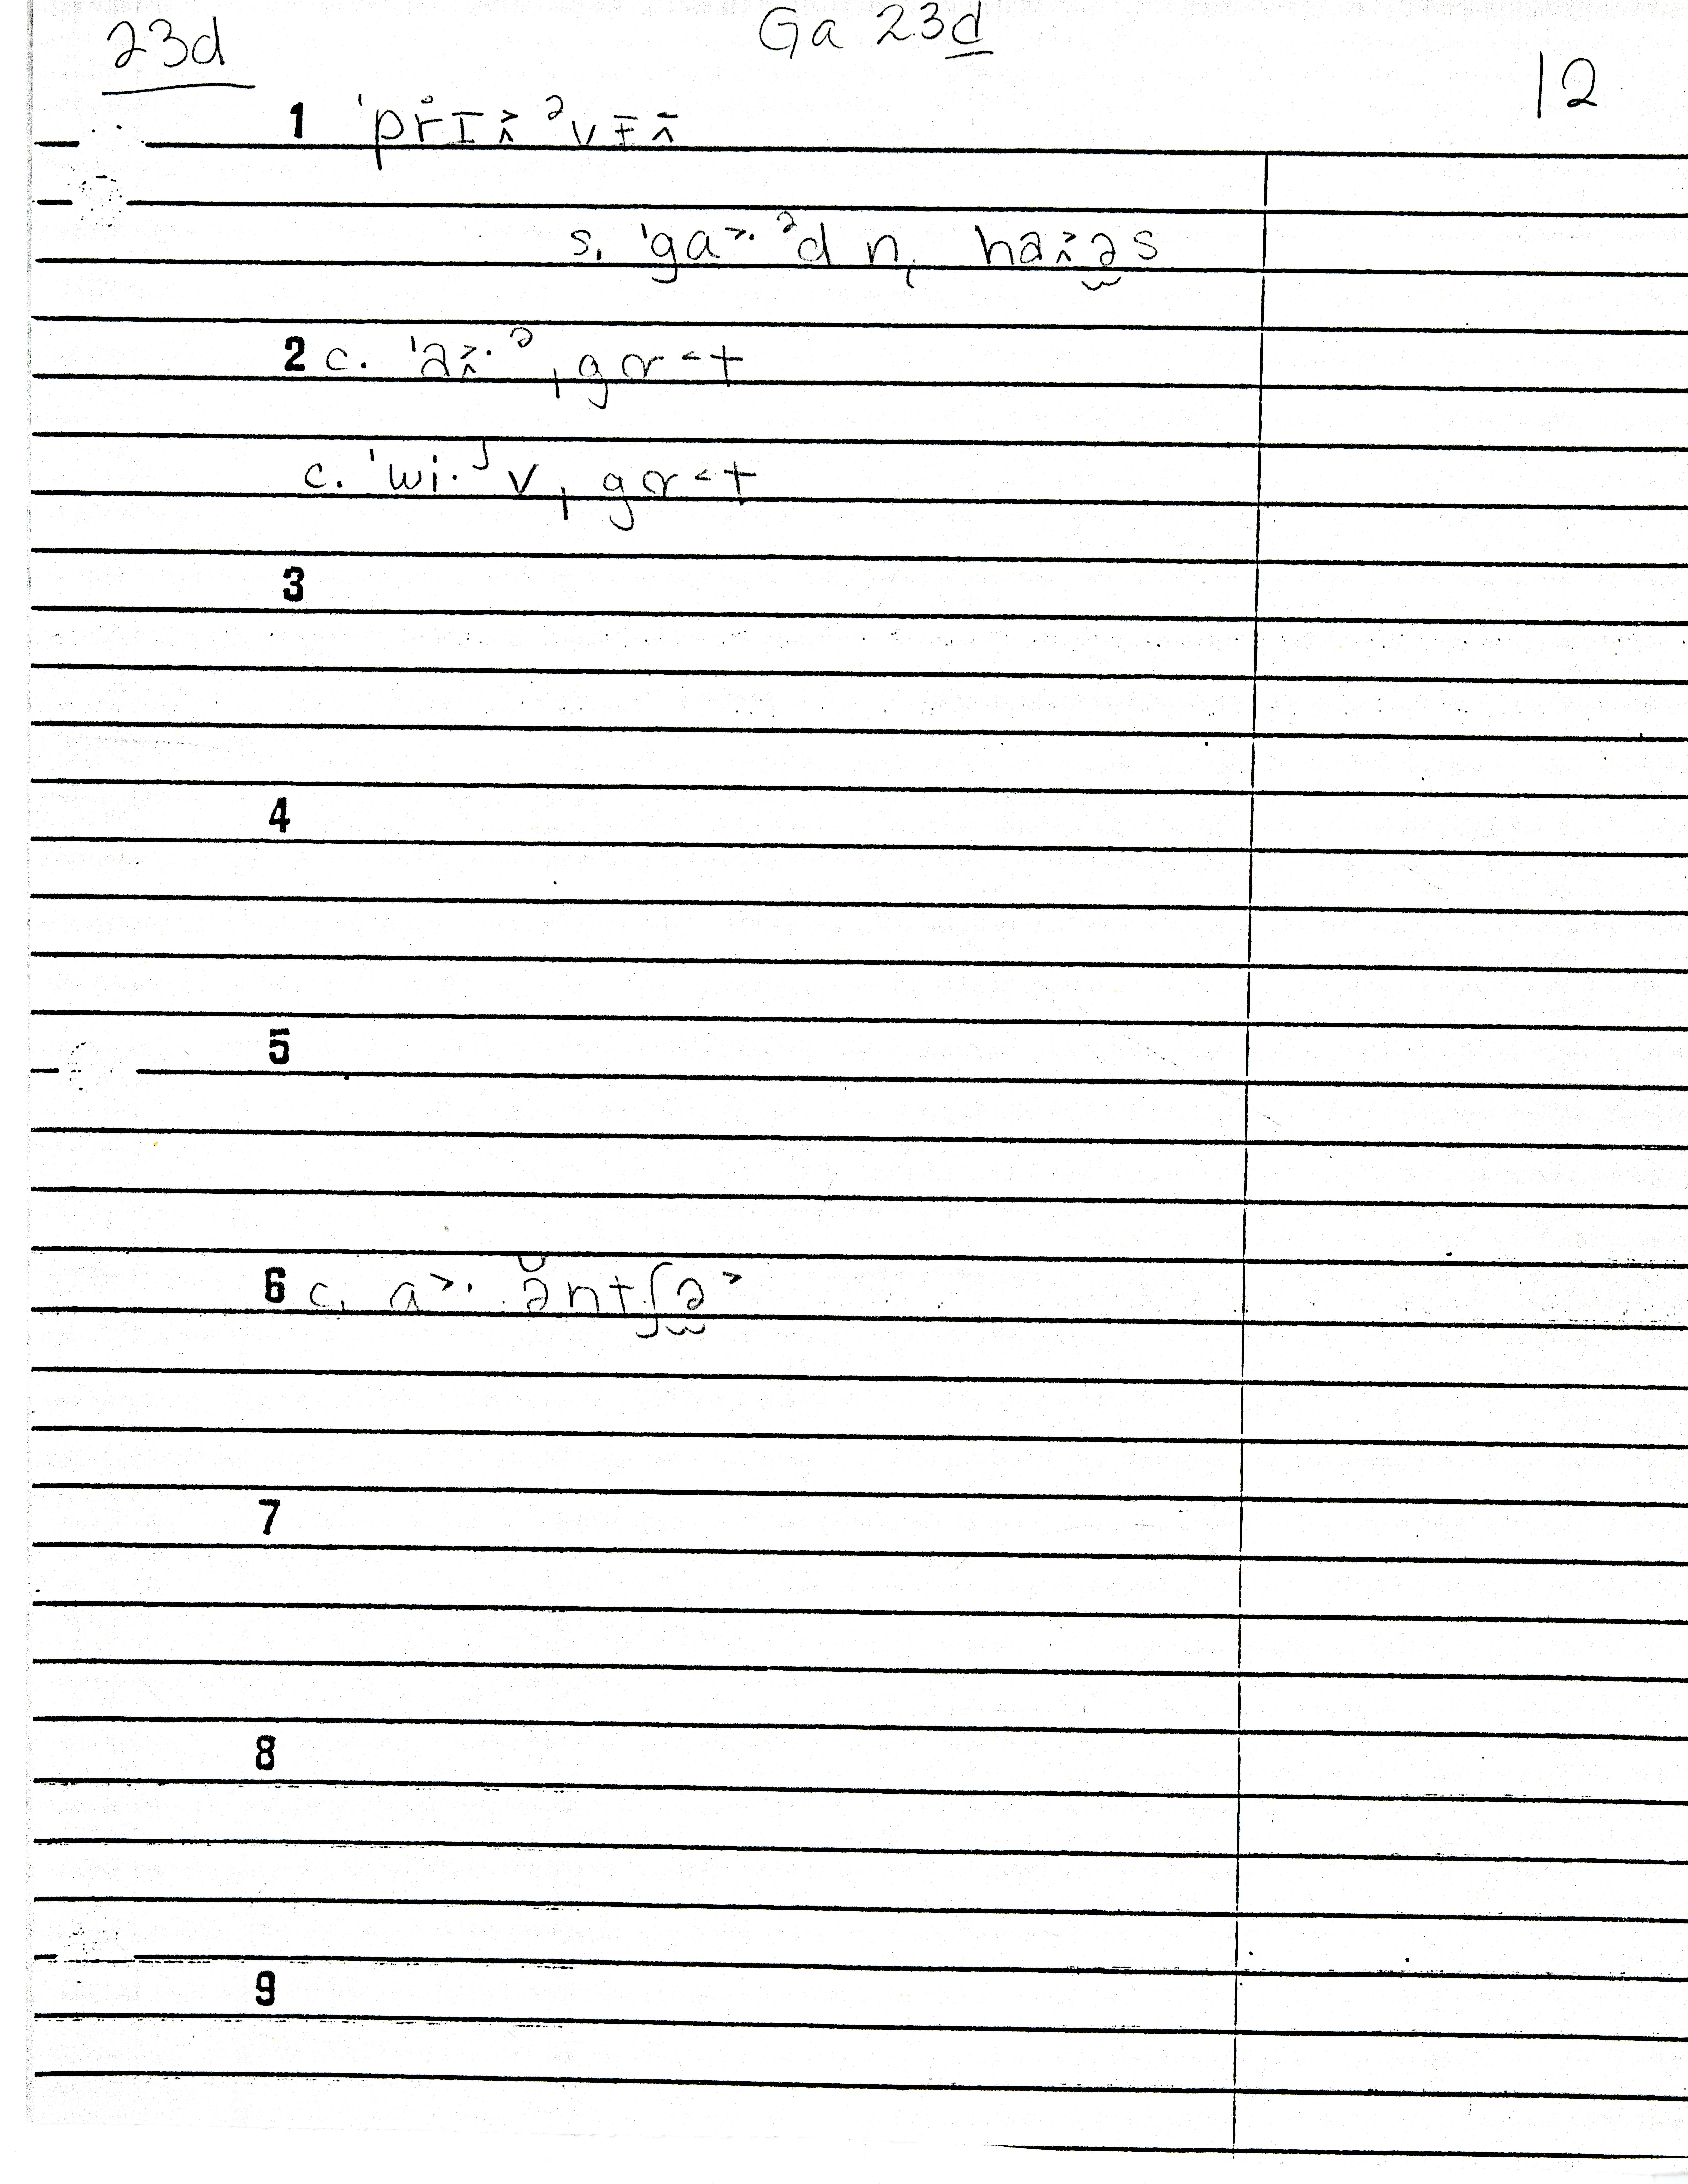 23d
Ga 23d
12
1 ˈpr̊ɪʌ˃ ²vɪ̵ʌ̄
s. ˈga˃· ²d n̩ haʌ˃əs
2 c. ˈəʌ˃· ² ˌgɚ˂t
c. ˈwi· ᴶv ˌgɚ˂t
3
4
5
6 c. a˃· ə̆ntʃə˃
7
8
9